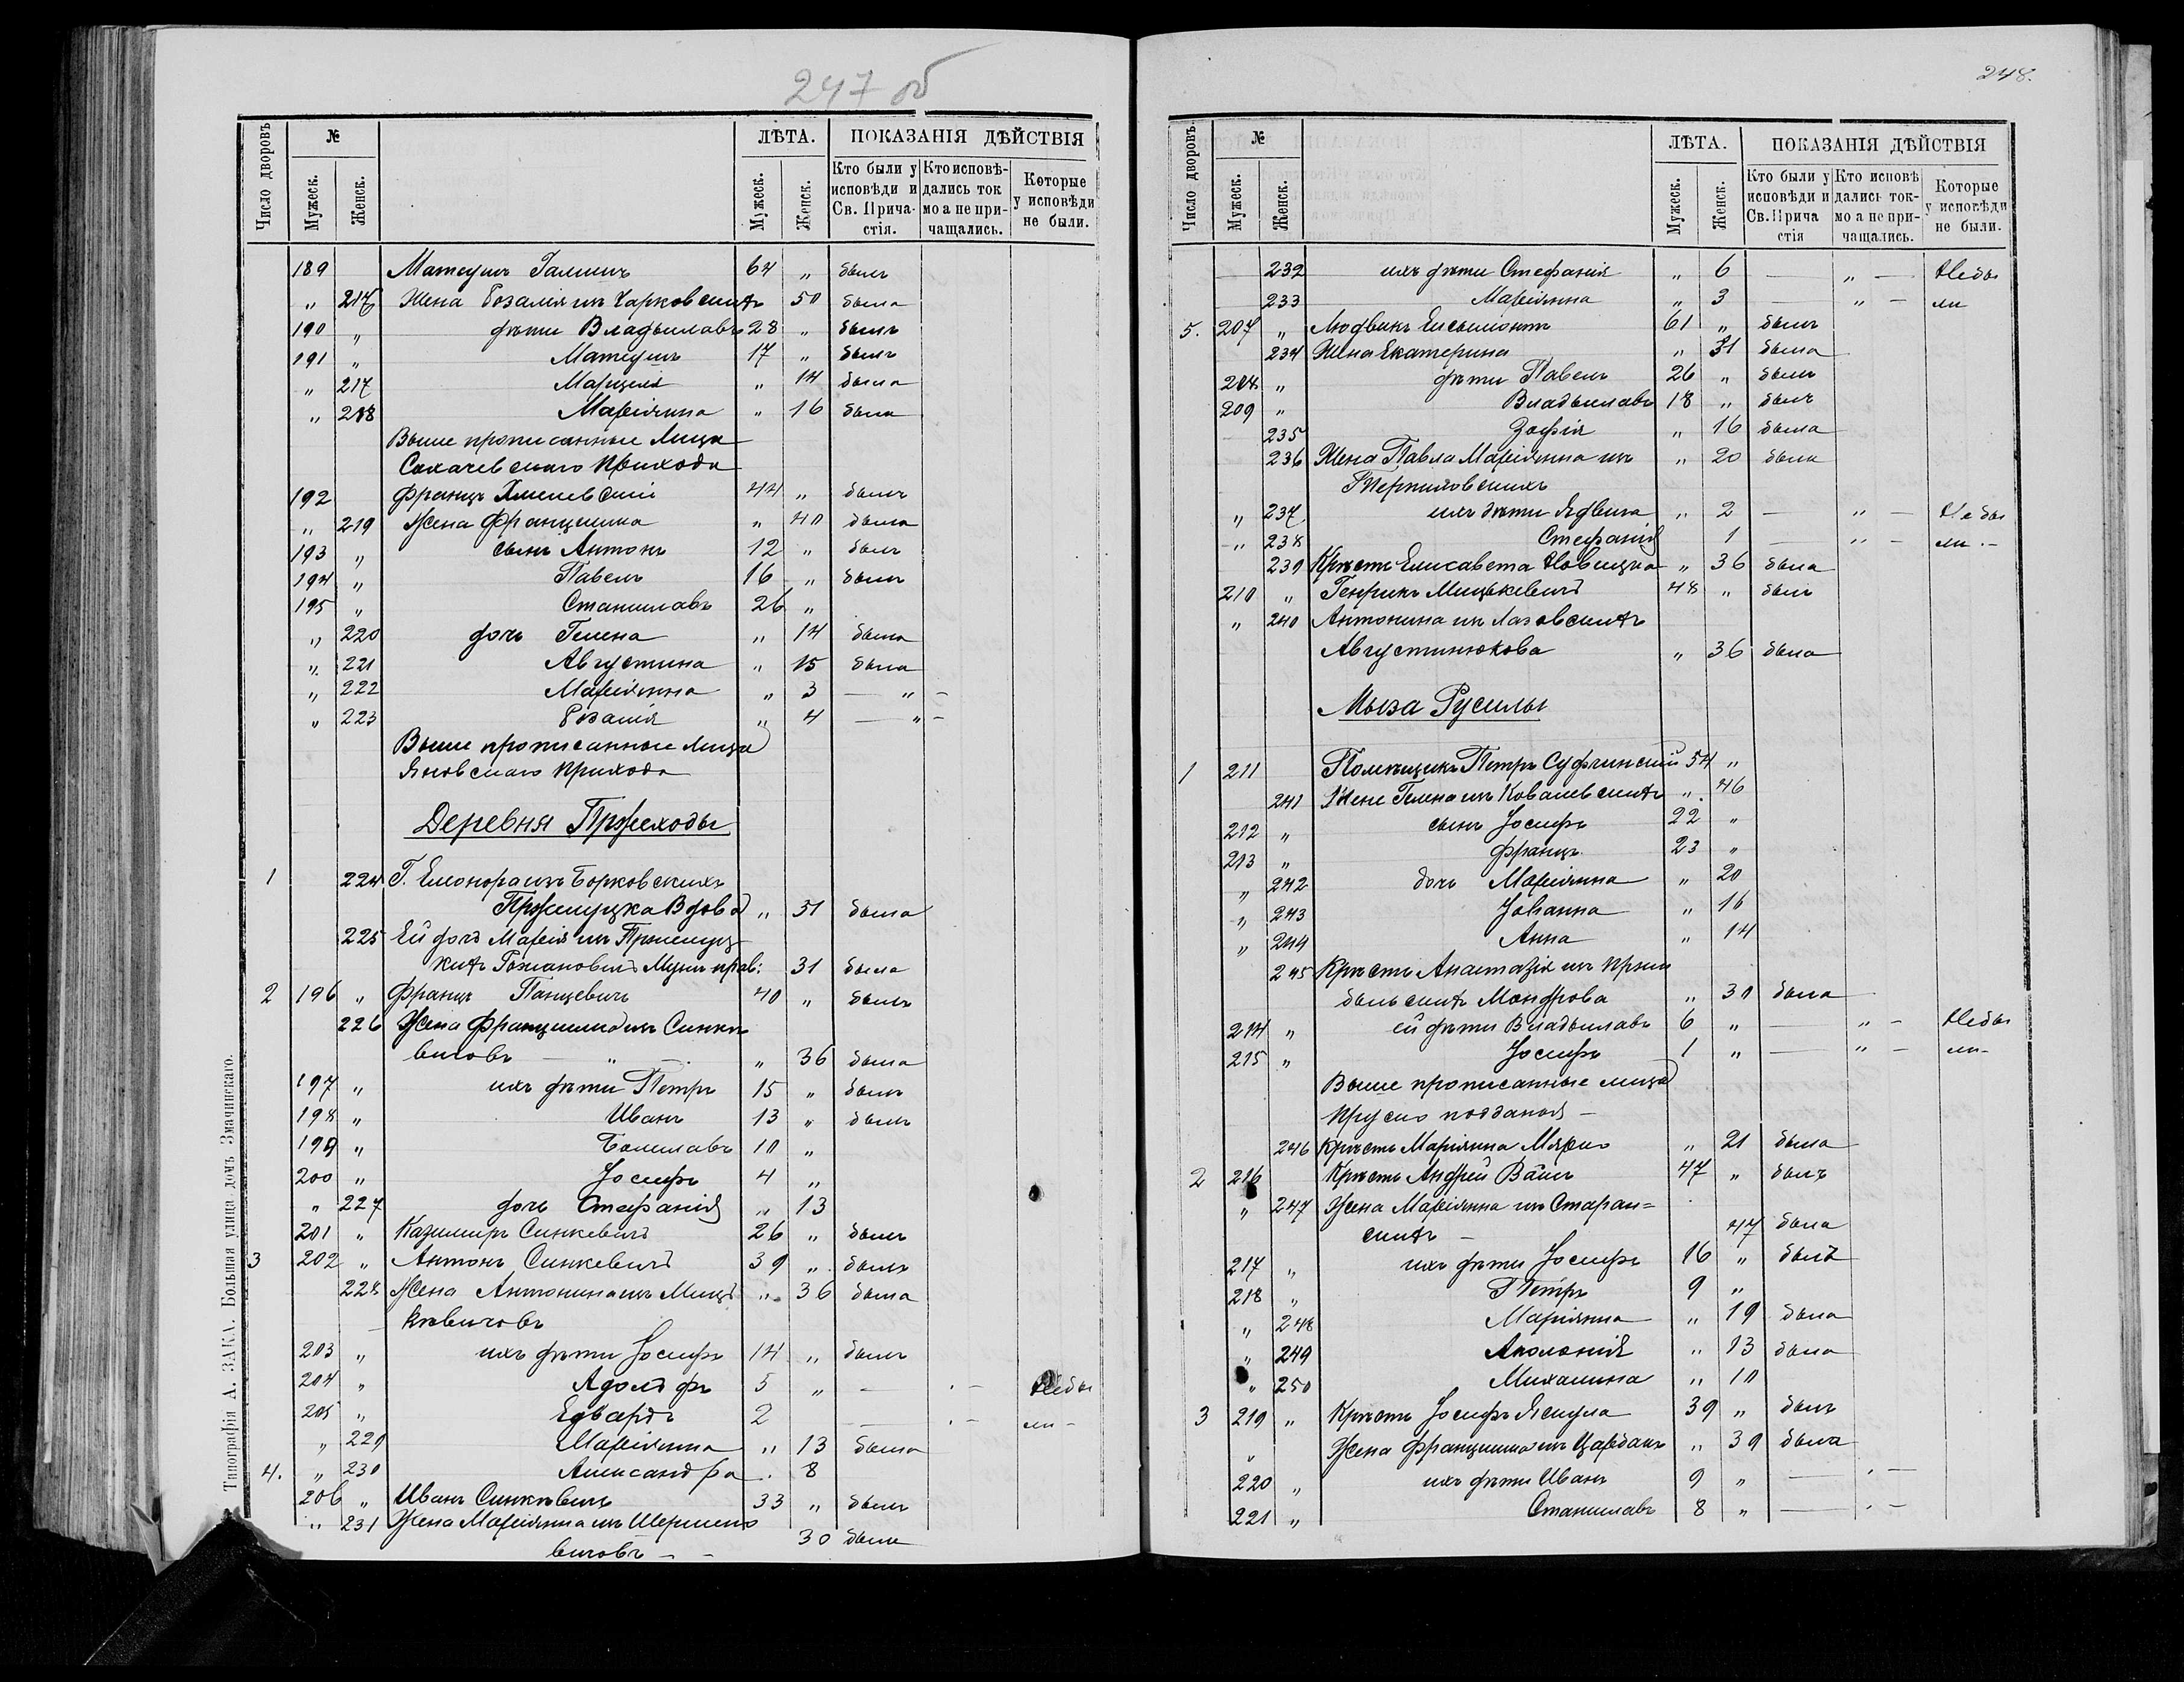 247 об
Число дворовъ
№
Мужеск.
Женск.
ЛѢТА.
Мужеск.
Женск.
ПОКАЗАНІЯ ДѢЙСТВІЯ
Кто были у исповѣди и Св. Прича-стія.
Кто исповѣ-дались ток мо а не при-чащались.
Которые у исповѣди не были.
189 Матеушъ 64 „ былъ
„ 216 Жена Розалія изъ Чарковскихъ 50 была
190 „ дѣти Владыславъ 28 „ былъ
191 „ Матеушъ 17 „ былъ
„ 217 Марцеля „ 14 была
„ 218 Маріянна „ 16 была
Выше прописанные Лица
Сахачевскаго Прихода
192 Францъ Хмелевскій 44 „ былъ
„ 219 Жена Францишка „ 40 была
193 „ сынъ Антонъ 12 „ былъ
194 „ Павелъ 16 „ былъ
195 „ Станиславъ 26 „
„ 220 дочь Гелена „ 14 была
„ 221 Августина „ 15 была
„ 222 Маріянна „ 3 — „ —
„ 223 Розалія „ 4 — „ —
Выше прописанные Лица
Яновскаго Прихода
Деревня Пржеходы
1 224 Г. Елеонора изъ Борковскихъ
Пржелуцка Вдова „ 51 была
225 Ей дочь Марія изъ Пржелуц
кихъ Рожановичъ Мужъ прав: 31 была
2 196 „ Францъ Панцевичъ 40 „ былъ
226 Жена Францишка изъ Синкѣ
вичовъ — „ — „ 36 была
197 „ ихъ дѣти Петръ 15 „ былъ
198 „ Иванъ 13 „ былъ
199 „ Болеславъ 10 „
200 „ Іосифъ 4 „
„ 227 дочь Стефанія „ 13
201 „ Казимиръ Синкевичъ 26 „ былъ
3 202 „ Антонъ Синкевичъ 39 „ былъ
228 Жена Антонина изъ Мицъ „ 36 была
кѣвичовъ
203 „ ихъ дѣти Іосифъ 14 „ былъ
204 „ Адольфъ 5 „ — „ — Небы
205 „ Едвардъ 2 — „ — ли —
„ 229 Маріянна „ 13 была
4. „ 230 Александра „ 8
206 „ Иванъ Синкѣвичъ 33 „ былъ
„ 231 Жена Маріянна изъ
вичовъ — — 30 была
Типографія А. ЗАКА. Большая улица домъ Змачинскаго.
248.
Число дворовъ.
№
Мужеск.
Женск.
ЛѢТА.
Мужеск.
Женск.
ПОКАЗАНІЯ ДѢЙСТВІЯ
Кто были у исповѣди и Св. Прича стія
Кто исповѣ дались ток-мо а не при-чащались.
Которые у исповѣди не были.
232 ихъ дѣти Стефанія „ 6 — „ — Небы
233 Маріянна „ 3 — „ — ли
5. 207 „ Людвикъ Ельсымонтъ 61 „ былъ
234 Жена Екатерина „ 51 была
208 „ дѣти Павелъ 26 „ былъ
209 „ Владыславъ 18 „ былъ
235 Зофія „ 16 была
236 Жена Павла Маріянна изъ „ 20 была
„ 237 ихъ дѣти Ядвига „ 2 — „ — Небы
„ 238 Стефанія 1 — „ — ли —
239 Крѣсть Елисавета Новицка „ 36 была
210 „ Генрикъ Мицкевичъ 48 „ былъ
„ 240 Антонина изъ Лазовскихъ
Августинюкова „ 36 была
Мыза Русилы
1 211 Помѣщикъ Петръ Суфчинскій 54 „
241 Жена Гелена изъ Ковалевскихъ „ 46
212 „ сынъ Іосифъ 22 „
213 „ Францъ 23 „
„ 242 дочь Маріянна „ 20
„ 243 Johанна „ 16
„ 244 Анна „ 14
245 Крѣсть Анастазія изъ Прши
быльскихъ Мондрова „ 30 была
214 „ ей дѣти Владыславъ 6 „ — „ — Небы
215 „ Іосифъ 1 „ — „ — ли —
Выше прописанные лица
Пруско подданая —
246 Крѣсть Маріянна „ 21 была
2 216 Крѣсть Андрей 47 „ былъ
„ 247 Жена Маріянна изъ Старан=
скихъ — 47 была
217 „ ихъ дѣти Іосифъ 16 „ былъ
218 „ Петръ 9 „
„ 248 Маріянна „ 19 была
„ 249 Аполонія „ 13 была
„ 250 Михалина „ 10
3 219 „ Крѣсть Іосифъ Ясиула 39 „ былъ
„ Жена Францишка изъ „ 39 была
220 „ ихъ дѣти Иванъ 9 „ — „ —
221 „ Станиславъ 8 „ — „ —